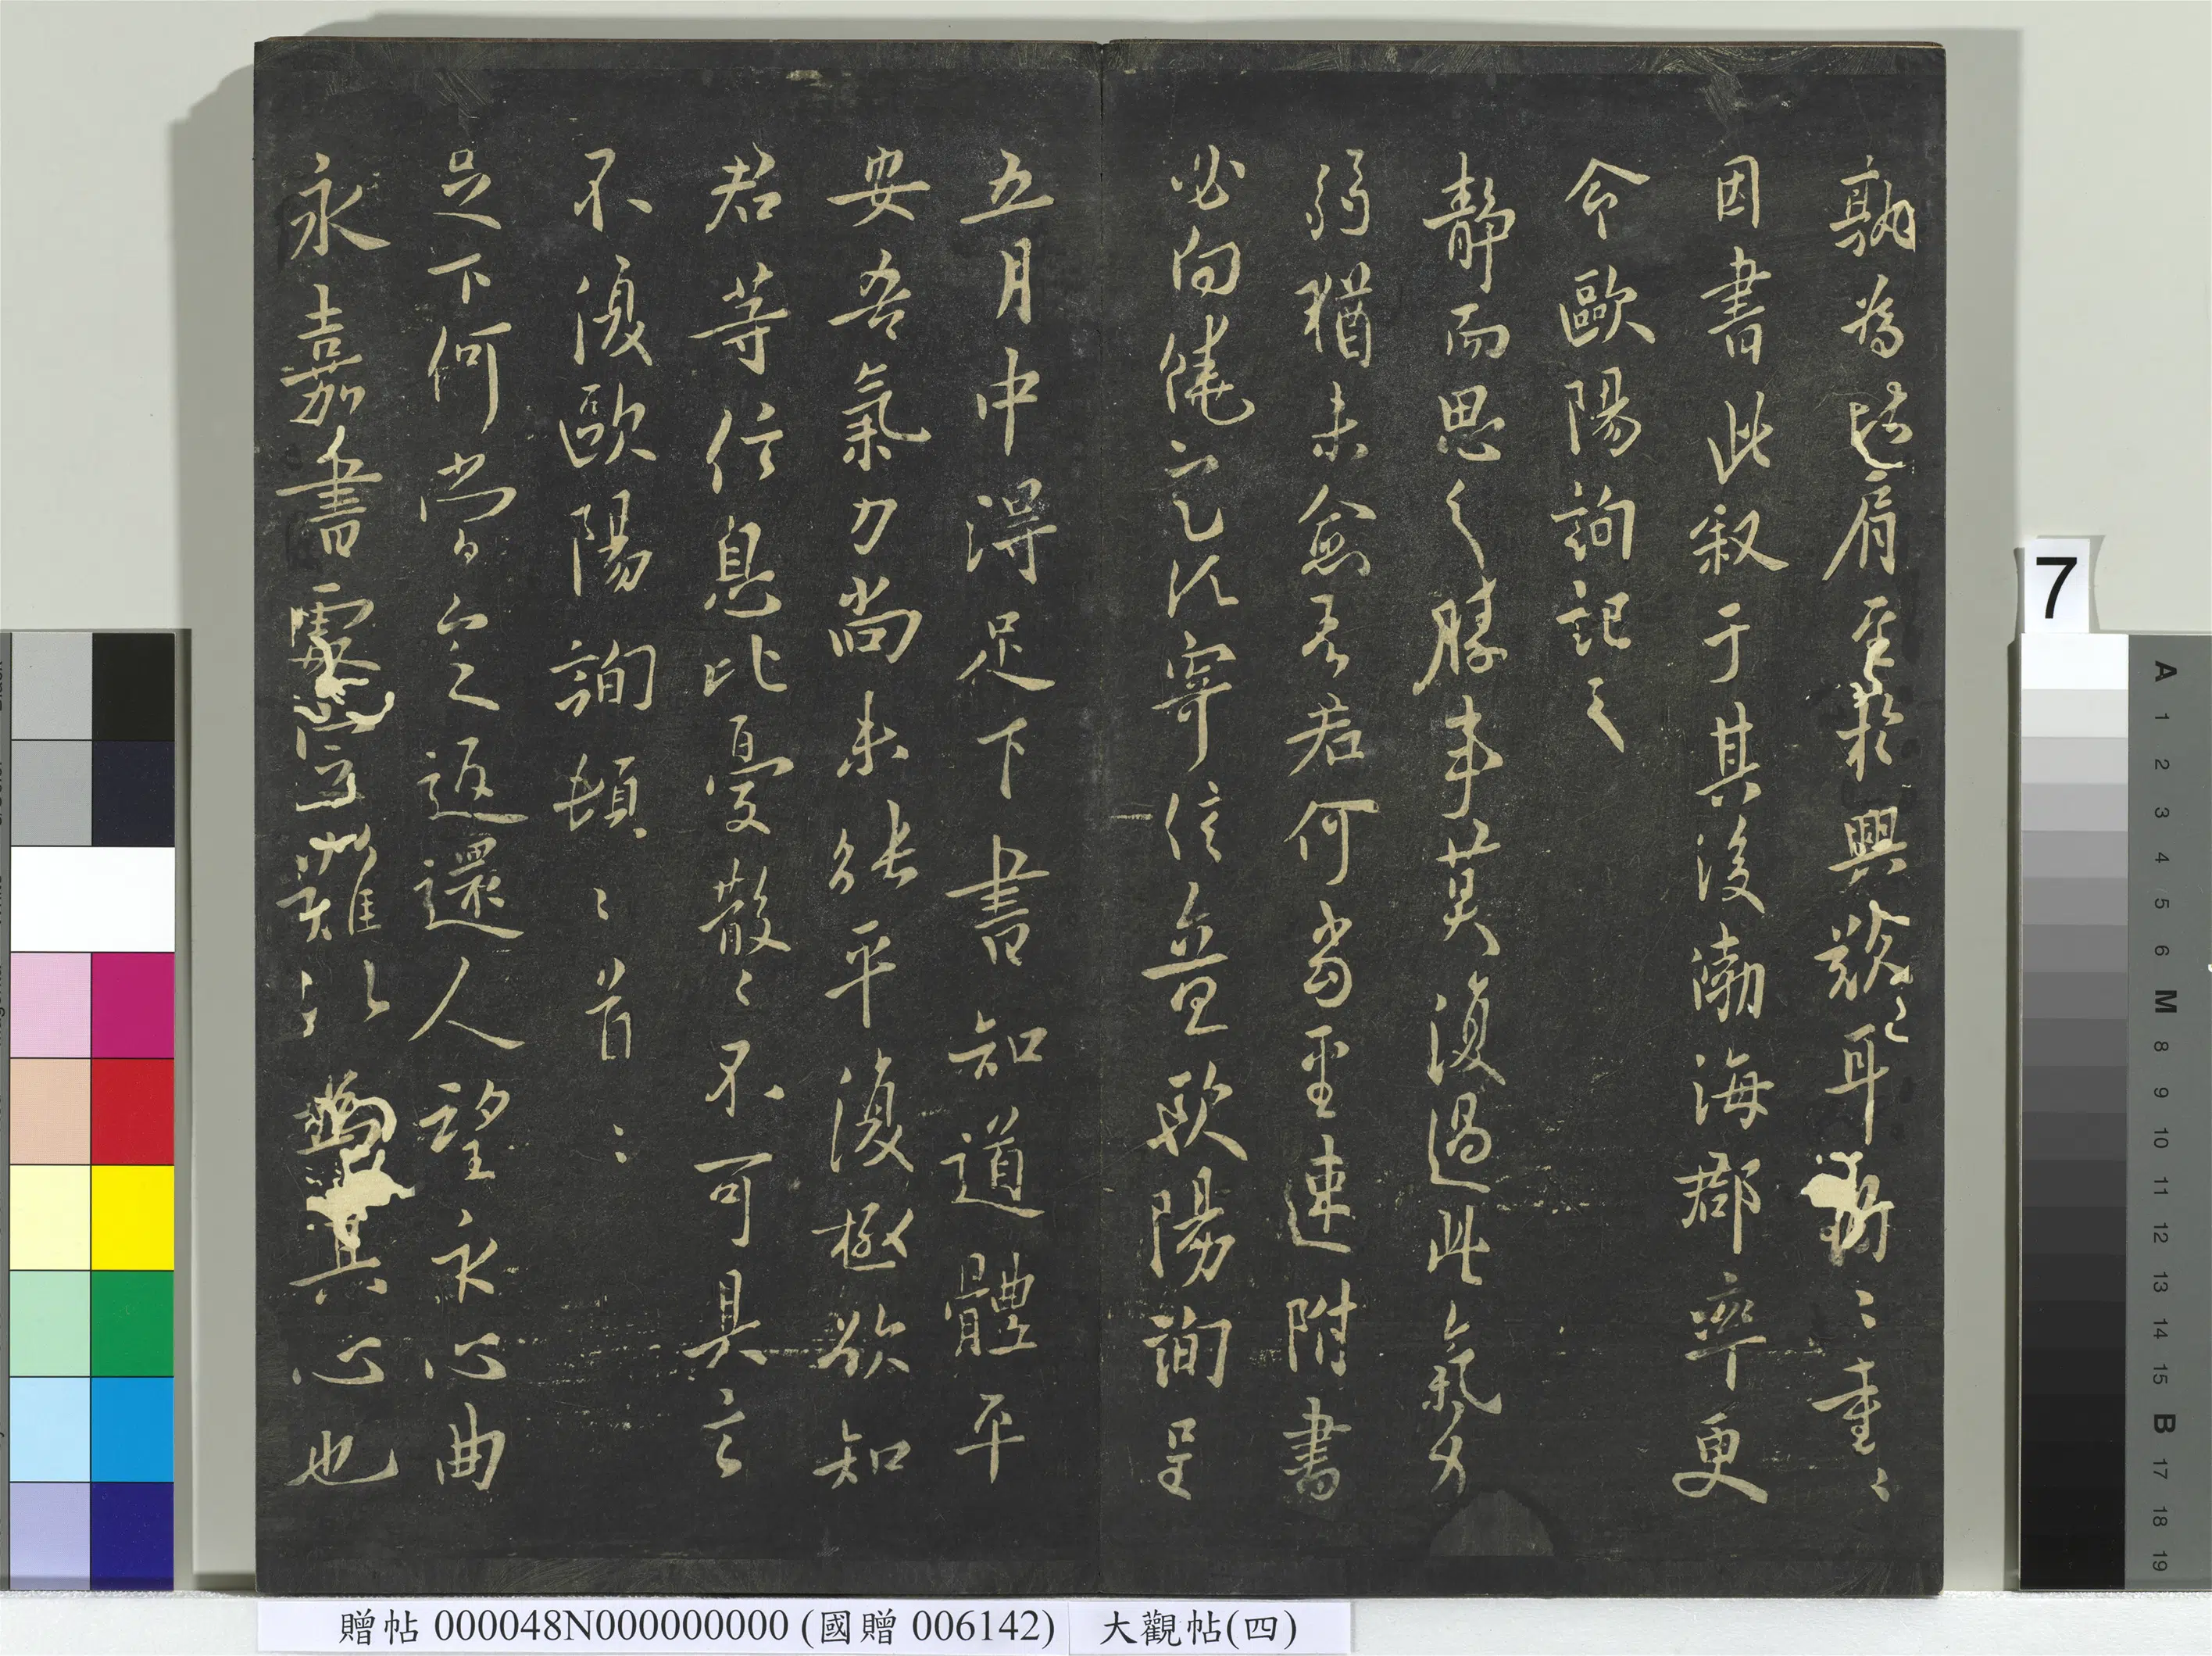 孰為比肩聊裁興歎〻耳〻重〻
因書此叙于其後渤海郡率更
令歐陽詢記之
靜而思之勝事莫復過此氣力
弱猶未愈吾君何當至速附書
必向饒定之須寄信並歐陽詢呈
五月中得足下書知道體平
安吾氣力尚未能平復極欲知
君等信息比憂散〻不可具言
不復歐陽詢頓〻首〻
足下何當言返還人望永心曲
永嘉書處難以其心也
7
A 1 2 3 4 5 6 M 8 9 10 11 12 13 14 15 B 17 18 19
贈帖 000048N000000000 (國贈 006142) 大觀帖(四)